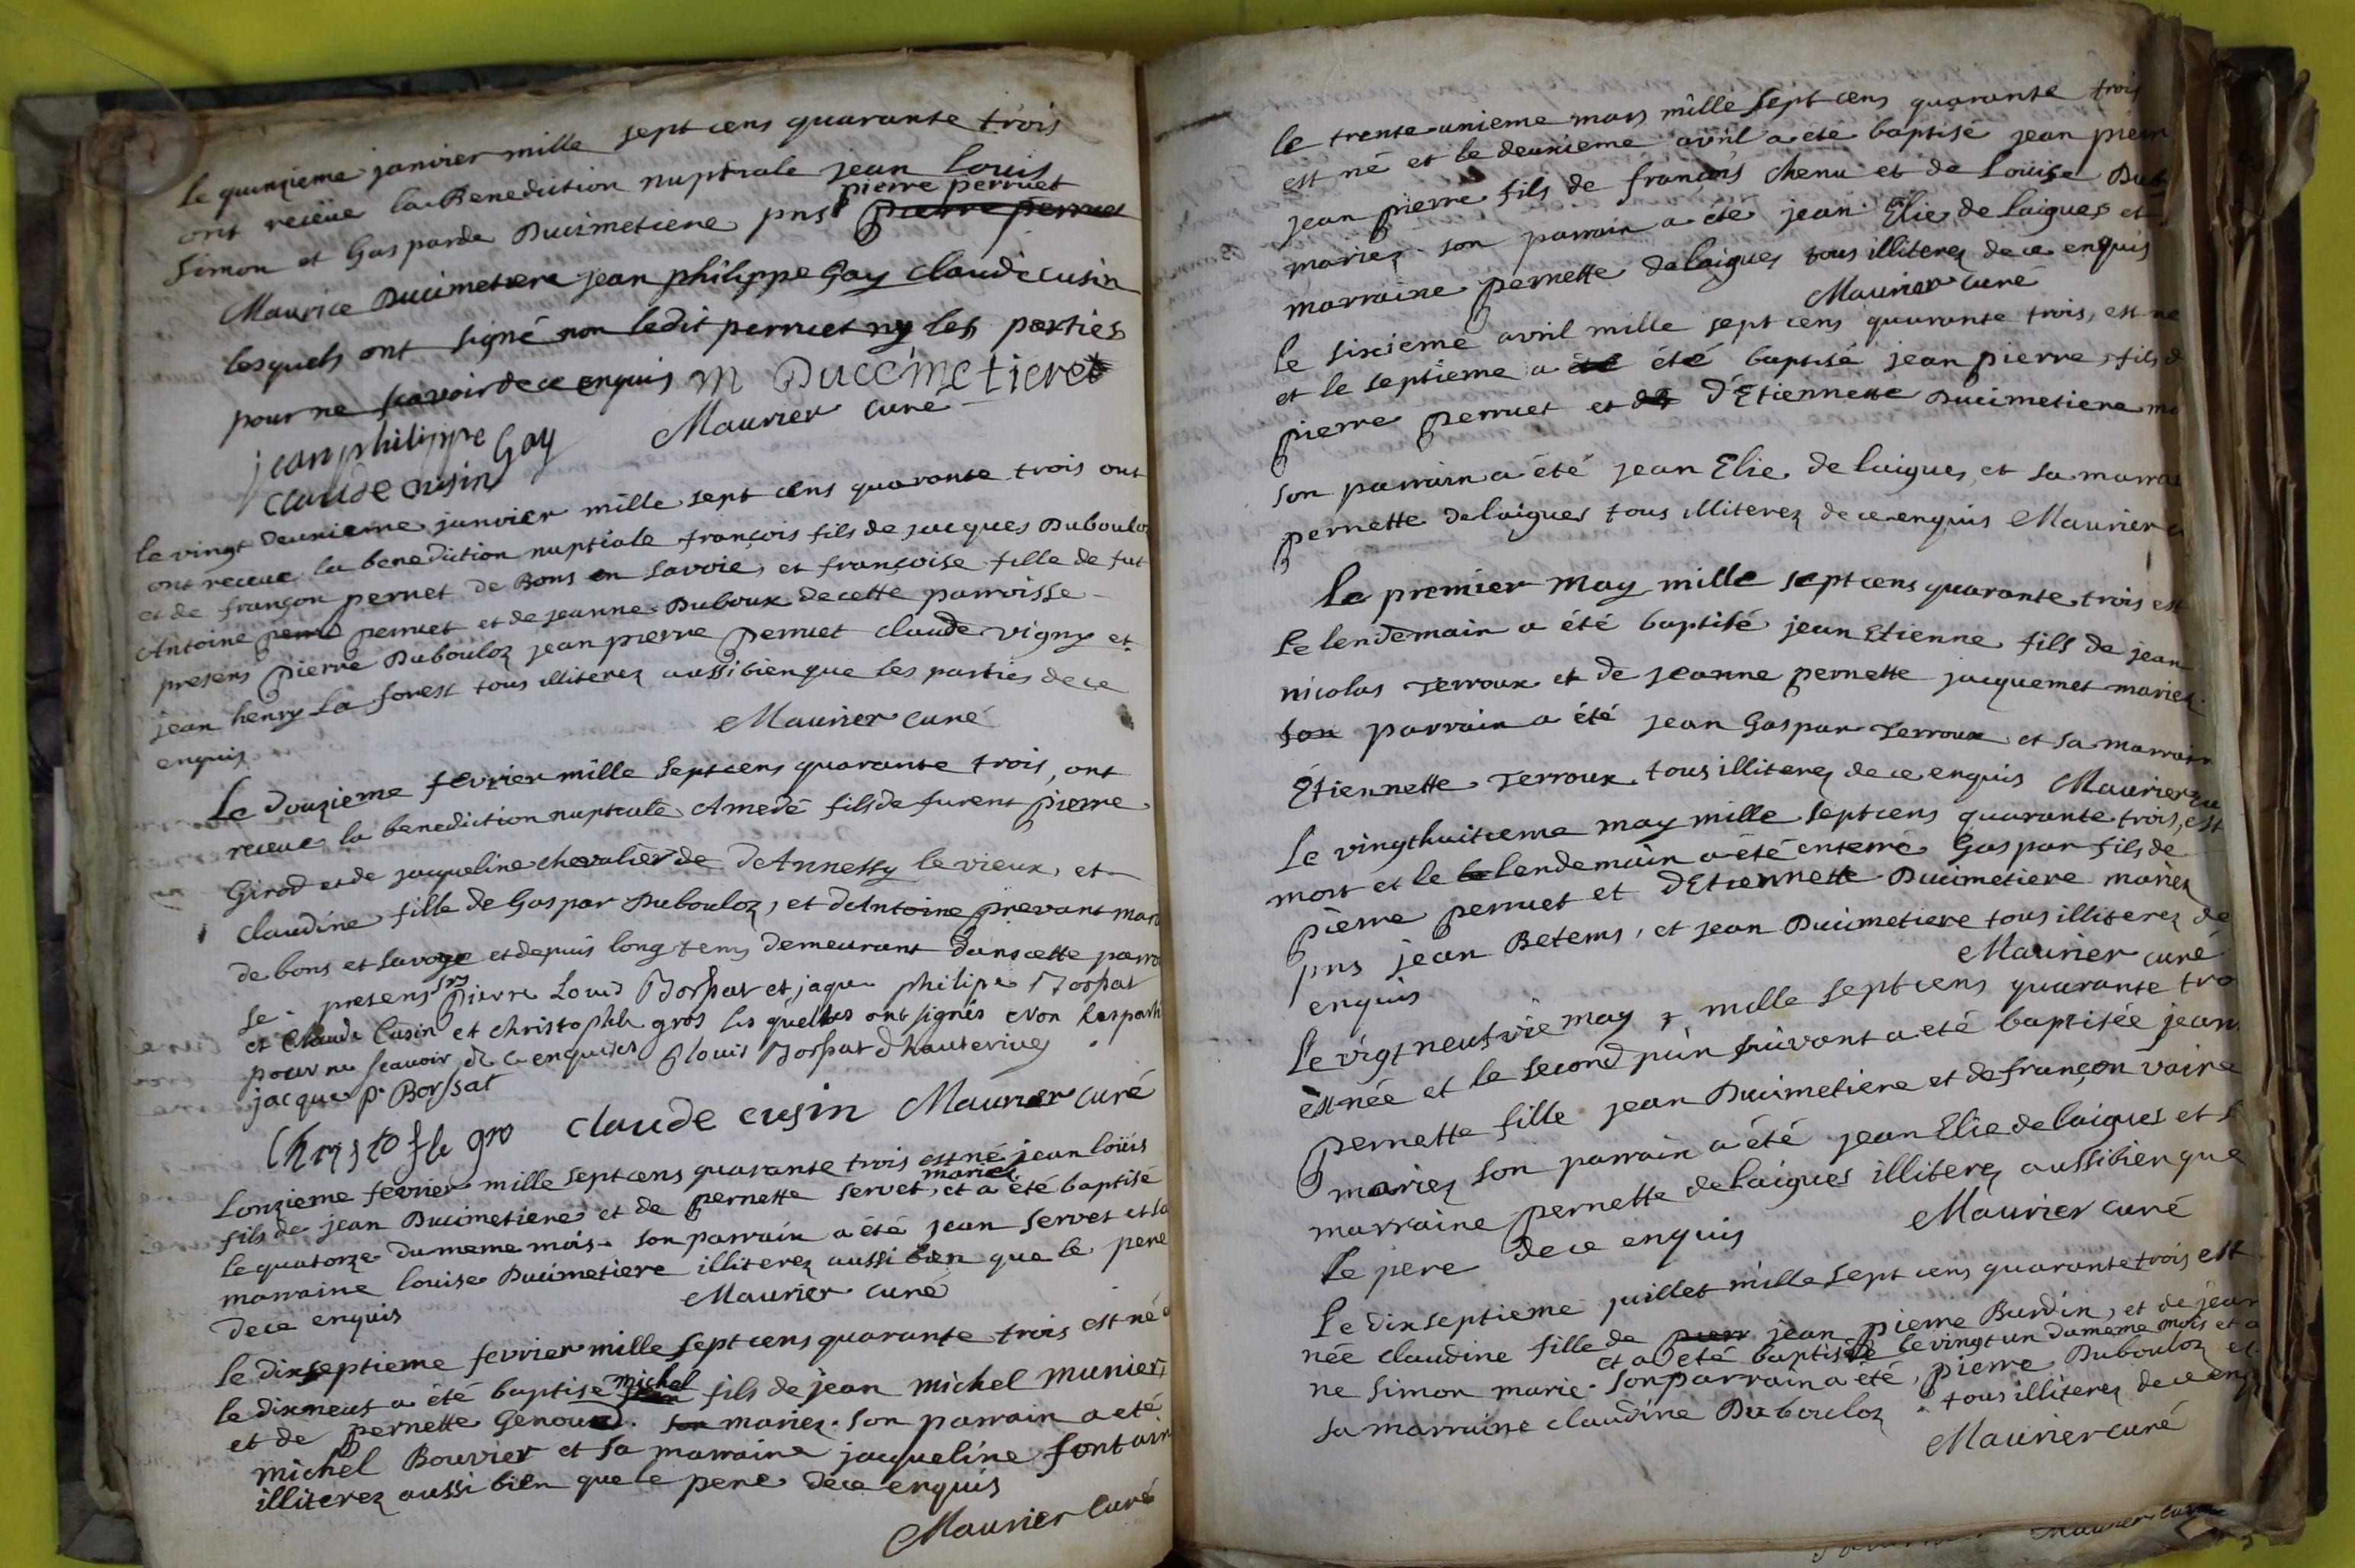 le quinzieme janvier mille sept cens quarante trois
ont receüe la Benediction nuptiale jean Louis
pierre perruet
Simon et Gasparde Ducimetiere pns pierre perruet
Maurice Ducimetiere jean philippe Gay claude cusin
lesquels ont signé non ledit perruet ny les parties
pour ne scavoir de ce enquis m Ducemetieret
Maurier curé
jean philippe Gay
claude cusin
le vingt deuxieme janvier mille sept cens quarante trois ont
ont receue la benediction nuptiale françois fils de jacques Dubouloz
et de françon pernet de Bons en Savoie, et françoise fille de fut
Antoine perruet et de jeanne Duboux de cette parroisse
presens pierre Dubouloz jean pierre perruet claude vigny et
jean henry La forest tous illiterez aussi bien que les parties de ce
enquis
Maurier curé
Le douzieme fevrier mille sept cens quarante trois, ont
receue la benediction nuptiale Amedé fils de furent pierre
Girod et de jacqueline chevalier de d'Annessy le vieux, et
claudine fille de Gaspar Dubouloz, et d'Antoine prevant mari
de bons et Savoye et depuis long tems demeurant dans cette parro
se. presens srs Pierre Louis Borssat et jaque philipe Borssat
et Claude Cusin et christophle gros les quelles ont signés et non les parti
pour ne scavoir de ce enquises P louis Borssat d'hauterives
jacque p. Borssat
Christofle gro claude cusin Maurier curé
L'onzieme fevrier mille sept cens quarante trois est né jean loüis
mariez
fils de jean Ducimetiere et de pernette servet, et a été baptisé
le quatorze du meme mois. son parrain a été jean servet et sa
marraine louise Ducimetiere illiterez aussi bien que le pere
de ce enquis
Maurier curé
le dixseptieme fevrier mille sept cens quarante trois est né e
michel
le dixneuf a été baptisé jean fils de jean michel munier
et de pernette Genoud. son mariez. son parrain a eté
michel Bouvier et sa marraine jacqueline fontain
illiterez aussi bien que le pere de ce enquis
Maurier curé
le trente unieme mars mille sept cens quarante trois
est né et le deuxieme avril a été baptisé jean pierr
jean pierre fils de françois chenu et de Loüise Dub
mariez. son parrain a été jean Elie de laigues et
marraine pernette delaigues tous illiterez de ce enquis
Maurier curé
le sixieme avril mille sept cens quarante trois, est né
et le septieme a été été baptisé jean pierre, fils d
pierre perruet et de d'Etiennette Ducimetiere ma
son parrain a été jean Elie de laigues, et sa marrai
pernette delaigues tous illiterez de ce enquis Maurier c
le premier may mille sept cens quarante trois est
le lendemain a été baptisé jean Etienne fils de jean
nicolas Terroux et de jeanne pernette jacquemet mariez.
son parrain a été jean Gaspar Terroux et sa marrain
Etiennette Terroux tous illiterez de ce enquis Maurier cu
Le vingthuitieme may mille sept cens quarante trois, est
mort et le le lendemain a été enterré Gaspar fils de
pierre perruet et d'Etiennette Ducimetiere mariez
pns jean Betems, et jean Ducimetiere tous illiterez de
enquis
Maurier curé
Le vigt neufvie may mille sept cens quarante tro
est née et le second juin suivant a eté baptisée jean
pernette fille jean Ducimetiere et de françon vaire
mariez son parrain a été jean Elie de laigues et s
marraine pernette delaigues illiterez aussi bien que
le pere de ce enquis
Maurier curé
Le dixseptieme juillet mille sept cens quarante trois est
née claudine fille de pierr jean pierre Burdin, et de jean
et a eté baptisée le vingt un du meme mois et a
ne simon marie. son parrain a été, pierre Dubouloz et
sa marraine claudine Dubouloz tous illiterez de ce enq
Maurier curé
Maurier curé